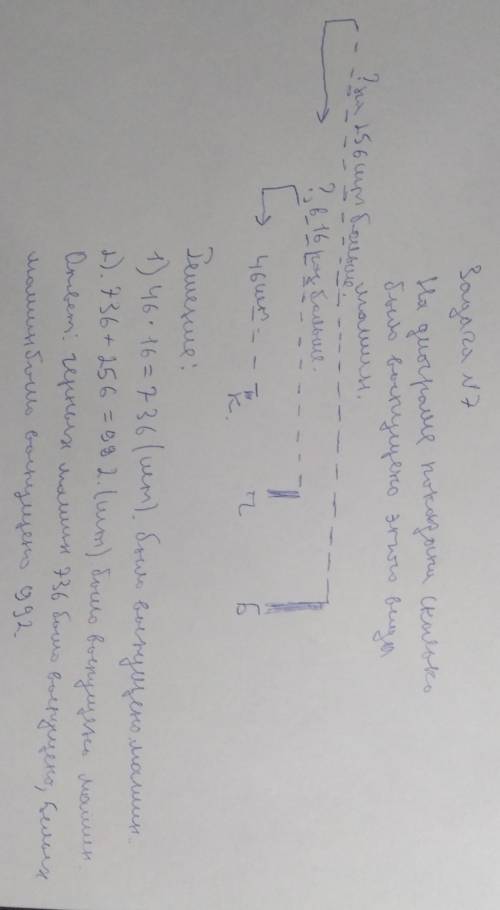 Задача №7
На диограме показанн сколько
было выпущено этого вида
машин.
? на 256 шт больше.
? в 16 раз больше.
46 шт
К. Ч Б
Решение:
1) 46 · 16 = 736 (шт). было выпущено машин.
2). 736 + 256 = 992. (шт) было выпущено машин.
Ответ: черных машин 736 было выпущено, белых
машин было выпущено 992